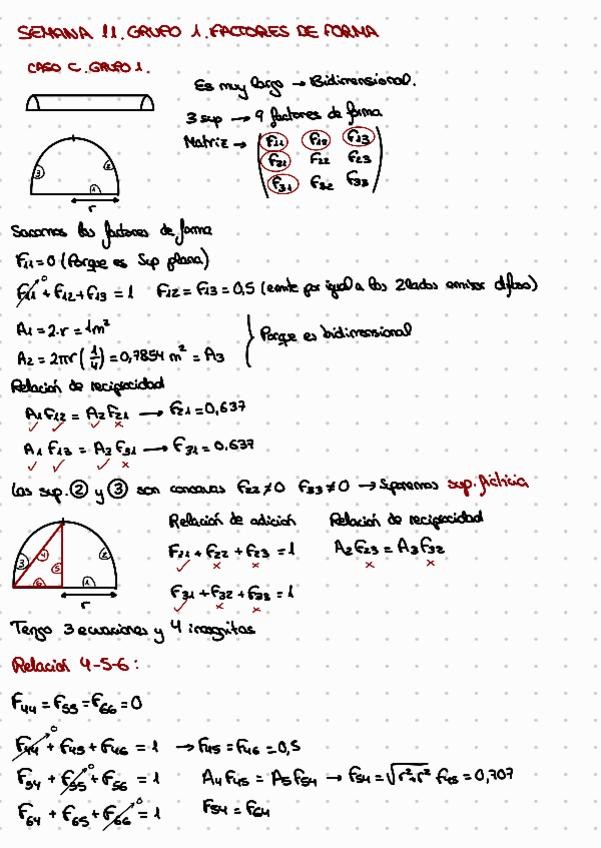 SEMANA 11. GRUPO 1. FACTORES DE FORMA
CASO C. GRUPO 1.
Es muy largo → Bidimensional.
3 sup → 9 factores de forma
Matriz → (F11 F12 F13
F21 F22 F23
F31 F32 F33)
3 2 1
r
Sacamos los factores de forma
F11 = 0 (Porque es sup plana)
F11 + F12 + F13 = 1 F12 = F13 = 0,5 (emite por igual a los 2 lados emisor difuso)
A1 = 2·r = 1m²
A2 = 2πr (1/4) = 0,7854 m² = A3
Porque es bidimensional
Relación de reciprocidad
A1F12 = A2F21 → F21 = 0,637
A1 F13 = A3 F31 → F31 = 0.637
Las sup. ② y ③ son concavas F22≠0 F33≠0 → Suponemos sup. ficticia
3 4 5 2 6 1
r
Relación de adición
F21 + F22 + F23 = 1
F31 + F32 + F33 = 1
Relación de reciprocidad
A2F23 = A3F32
Tengo 3 ecuaciones y 4 incognitas
Relación 4-5-6:
F44 = F55 = F66 = 0
F44 + F45 + F46 = 1 → F45 = F46 = 0,5
F54 + F55 + F56 = 1 A4F45 = A5F54 → F54 = √r²+r² F45 = 0,707
F64 + F65 + F66 = 1 F54 = F64